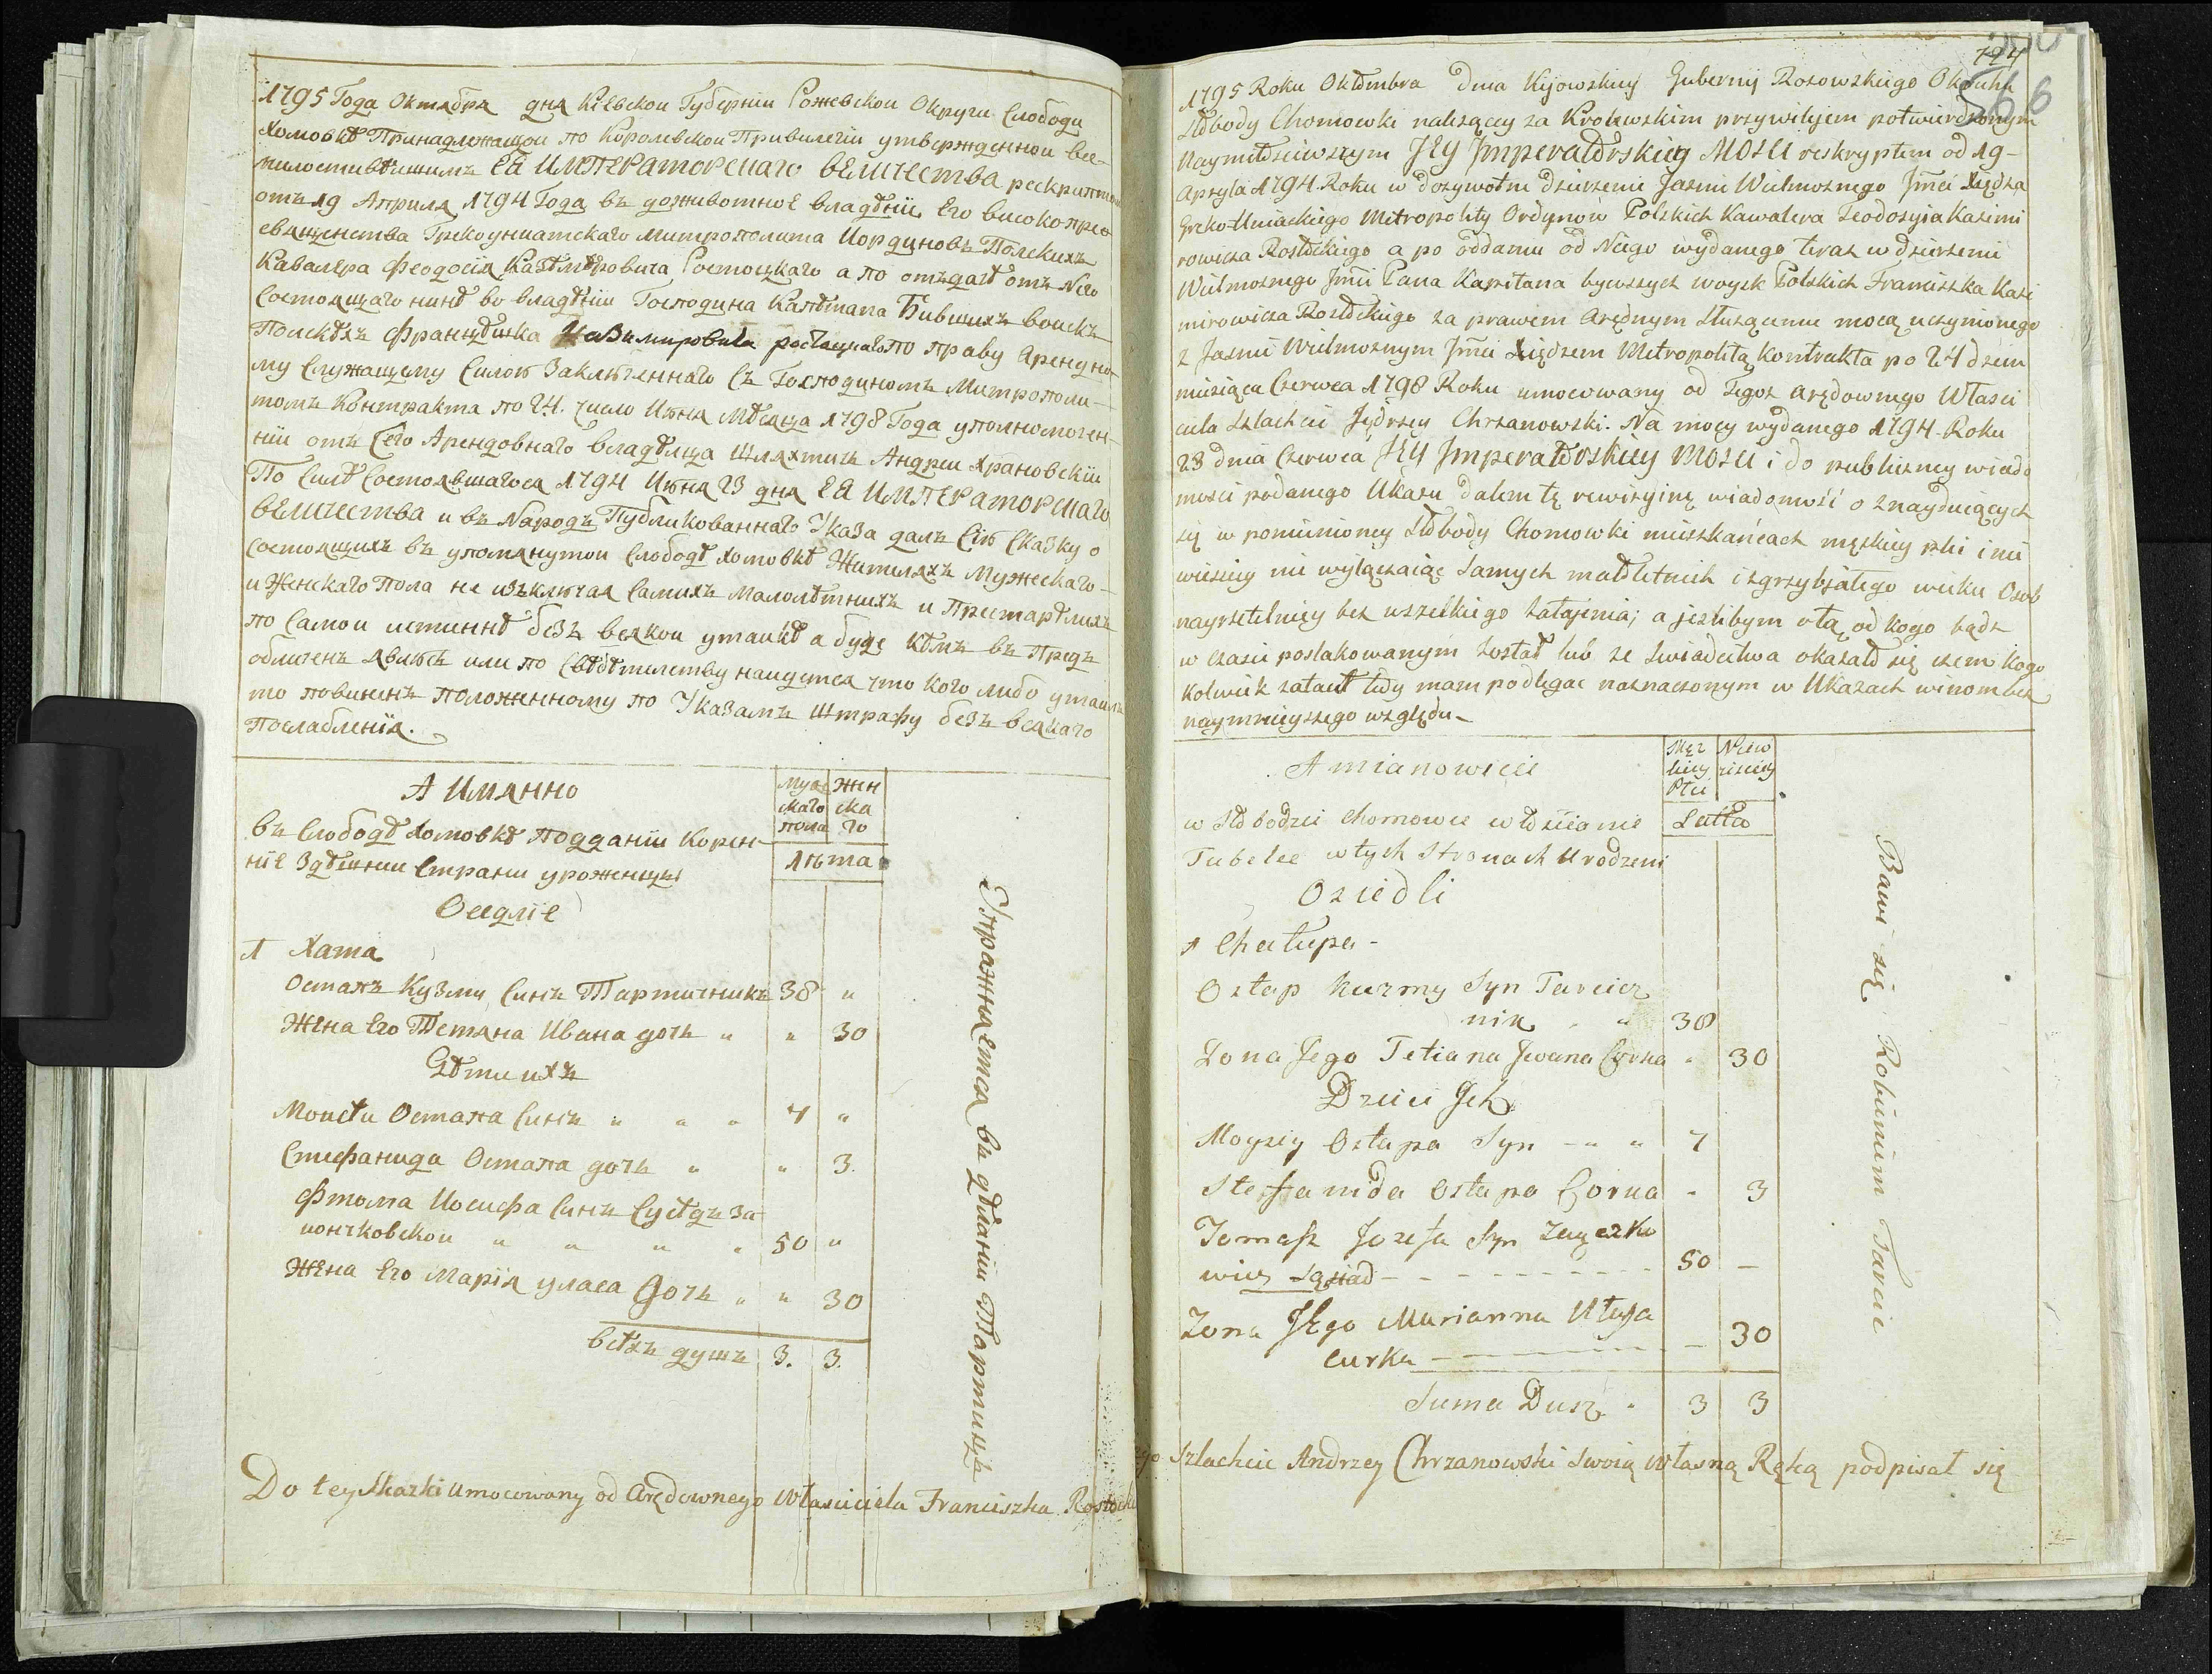 1795 Года Октября дня Кіевскои Губерніи Рожевскои Округи Слободи
Хомовкѣ Принадлежащои по Королевскои Привилегіи утвержденнои все-
милостивѣишимъ ЕЯ ИМПЕРАТОРСКАГО ВЕЛИЧЕСТВА рескриптомъ
отъ 19 Априля 1794 Года въ доживотное владѣніе Его високопрео
священства Грекоуниатскаго Митрополита Иординовъ Полскихъ
Кавалера Феодосія Казѣмѣровича Ростоцкаго а по отъдачѣ отъ Него
Состоящаго нинѣ во владѣніи Господина Капѣтана Бившихъ воискъ
Полскѣхъ Францѣшка Казимировича ростоцкаго по праву Арендно-
му Служащему Силою Заключеннаго Съ Господиномъ Митрополи-
томъ Контракта по 24. число Июня Мѣсяца 1798 Года уполномочен-
ніи отъ Сего Арендовнаго владѣлца Шляхтичъ Андреи Храновскіи
По Силѣ Состоявшагося 1794 Июня 23 дня ЕЯ ИМПЕРАТОРСКАГО
ВЕЛИЧЕСТВА и въ Народъ Публикованнаго Указа далъ Сію Сказку о
состоящихъ въ упомянутои Слободѣ Хомовкѣ Жителяхъ Мужескаго-
и Женскаго Пола не изъключая Самихъ Малолѣтнихъ и Престарѣлихъ
по Самои истиннѣ безъ всякои утаикѣ а буде Кѣмъ въ Предъ
обличенъ явлюсь или по Свѣдѣтелству наидется что кого либо утаилъ
то повиненъ положенному по Указамъ Штрафу безъ всякаго
Послабленія.
А Имянно
Муж скаго пола
Жен ска го
Лѣта
въ Слободѣ Хомовкѣ Подданіи Корен-
ніе Здѣшнеи Страни уроженцы
Оседліе
1 Хата
Остапъ Кузми Синъ Тартичникъ 38 "
Жена Его Тетяна Ивана дочь " " 30
Дѣти ихъ
Моисѣи Остапа Синъ " " " 7 "
Стефанида Остапа дочь " " 3.
Фтома Иосифа Синъ Сусѣдъ За-
иончковскои " " " " 50 "
Жена Его Марія уласа дочь " " 30
всѣхъ душъ 3. 3.
Упражняется въ дѣланіи Тартицъ
Do tey Skazki Umocowany od Arędownego Własciciela Franciszka Rostockie
194
566
1795 Roku Oktombra Dnia Kijowskiey Gubernij Rozowskiego Okruhu
Słobody Chomowki nalezącey za Krolewskim przywilejem potwierdzonym
Naymiłosciwszym JEY Jmperatorskiey MOSCI reskryptem od 19-
Apryla 1794. Roku w dozywotne dzierzenie Jasnie Wielmoznego Jmći Xiędza
Greko-Uniackiego Metropolity Ordynow Polskich Kawalera Teodosyia Kazimi
rowicza Rostockiego a po oddaniu od Niego wydanego teraz w dzierzeniu
Wielmoznego Jmći Pana Kapitana bywszych woysk Polskich Franciszka Kazi
mirowicza Rostockiego za prawem Arędnym Słuzącemu mocą uczynionego
z Jasnie Wielmoznym Jmći Xiędzem Metropolitą Kontrakta po 24 dzien
miesiąca Czerwca 1798 Roku umocowany od Tegoz arędownego Własci
ciela Szlachcic Jędrzey Chrzanowski. Na mocy wydanego 1794. Roku
23 dnia Czerwca JEY Jmperatorskiey MOSCI i do publiczney wiado
mosci podanego Ukazu dałem tę rewizyinę wiadomość o znayduiących
się w pomienioney Słobody Chomowki mieszkańcach męskiey płci i nie
wiesciey nie wyłączaiąc Samych małoletnich i zgrzybiałego wieku Osob
nayrzetelniey bez wszelkiego zatajenia; a jezlibym otą od kogo bądz
w czasie poszlakowanym został lub ze Swiadectwa okazało się ezem kogo
kolwiek zataił tedy mam podlegac naznaczonym w Ukazach winom bez
naymnieyszego względu_
A mianowicie
Męz kiey Płci
Niew ieściey
Latta
w Słobodzie Chomowce włościanie
Tubelce w tych Stronach Urodzeni
Osiedli
1 Chałupa -
Ostap Kuzmy Syn Tarcicz
nik " 38
Zona Jego Tetiana Jwana Corka " 30
Dzieci Jch
Moyzey Ostapa Syn - " " 7
Stefanida Ostapa Corka " 3
Tomasz Jozefa Syn Zaączko
wicz Sąsiad - - - 50 -
Zona JEgo Marianna Ułasa
curka - - - 30
Suma Dusz " 3 3
Bawi się Robieniem Tarcic
go Szlachcic Andrzey Chrzanowski Swoią Własną Ręką podpisał się